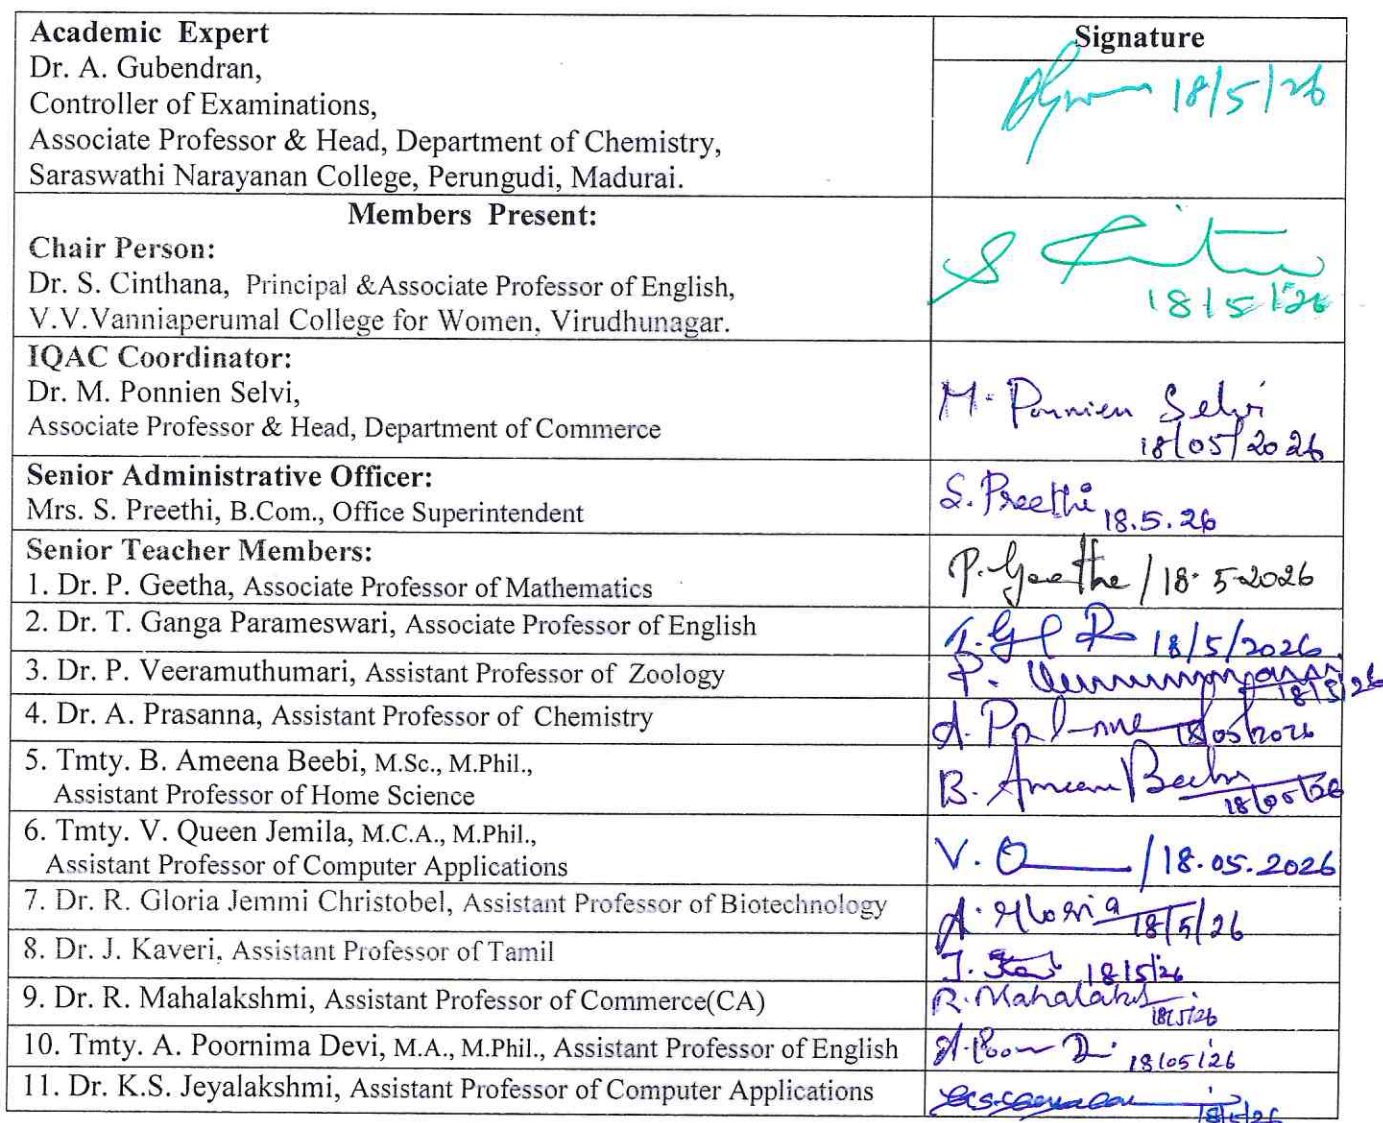 Academic Expert
Signature
Dr. A. Gubendran,
Controller of Examinations,
Associate Professor & Head, Department of Chemistry,
Saraswathi Narayanan College, Perungudi, Madurai.
18/5/26
Members Present:
Chair Person:
Dr. S. Cinthana, Principal &Associate Professor of English,
V.V.Vanniaperumal College for Women, Virudhunagar.
18/5/26
IQAC Coordinator:
Dr. M. Ponnien Selvi,
Associate Professor & Head, Department of Commerce
M. Ponnien Selvi
18/05/2026
Senior Administrative Officer:
Mrs. S. Preethi, B.Com., Office Superintendent
S. Preethi 18.5.26
Senior Teacher Members:
1. Dr. P. Geetha, Associate Professor of Mathematics
P. Geetha / 18.5.2026
2. Dr. T. Ganga Parameswari, Associate Professor of English
18/5/2026
3. Dr. P. Veeramuthumari, Assistant Professor of Zoology
18/5/26
4. Dr. A. Prasanna, Assistant Professor of Chemistry
18/05/2026
5. Tmty. B. Ameena Beebi, M.Sc., M.Phil.,
Assistant Professor of Home Science
B. Ameena Beebi
18/05/26
6. Tmty. V. Queen Jemila, M.C.A., M.Phil.,
Assistant Professor of Computer Applications
V. Q / 18.05.2026
7. Dr. R. Gloria Jemmi Christobel, Assistant Professor of Biotechnology
18/5/26
8. Dr. J. Kaveri, Assistant Professor of Tamil
18/5/26
9. Dr. R. Mahalakshmi, Assistant Professor of Commerce(CA)
18/5/26
10. Tmty. A. Poornima Devi, M.A., M.Phil., Assistant Professor of English
18/05/26
11. Dr. K.S. Jeyalakshmi, Assistant Professor of Computer Applications
18/5/26